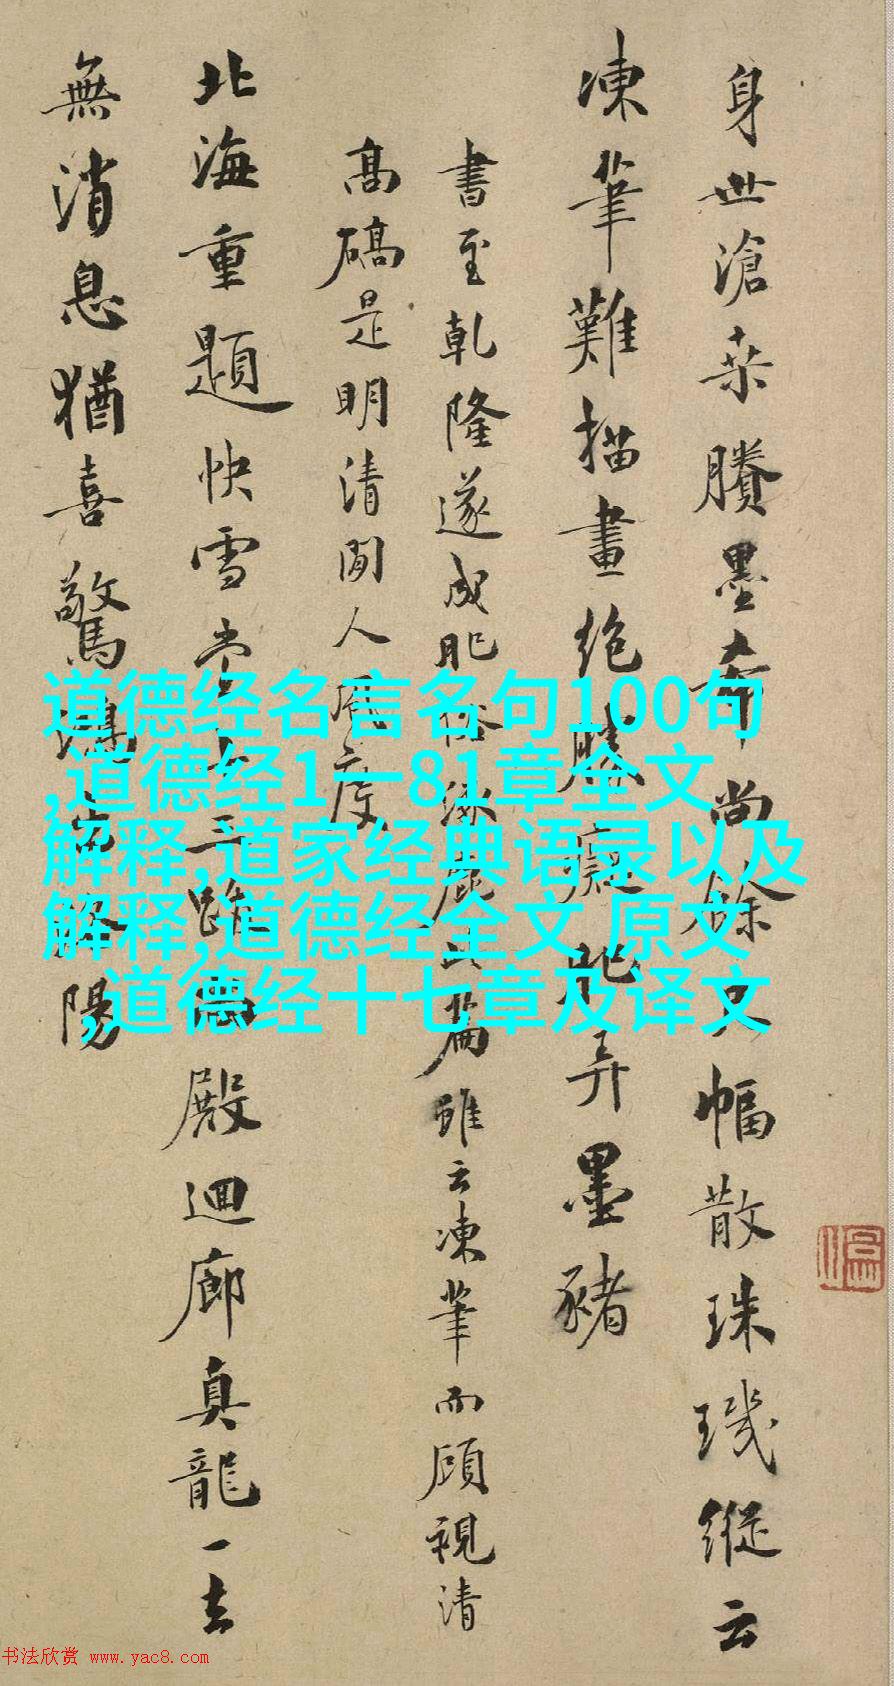 身世滄桒賸墨尚餘幅散珠璣縱云
凍筆難描畫絶勝癡肥弄墨豬
書至乾隆遂成肥俗此篇雖云凍筆而顧視清
高碻是明清間人風度
北海重題快雪堂殿迴廊真龍一去
無消息猶喜驚鴻洛陽
道德经名言名句100句
,道德经1一81章全文
解释,道家经典语录以及
解释,道德经全文,原文
,道德经十七章及译文
书法欣赏 www.yac8.com